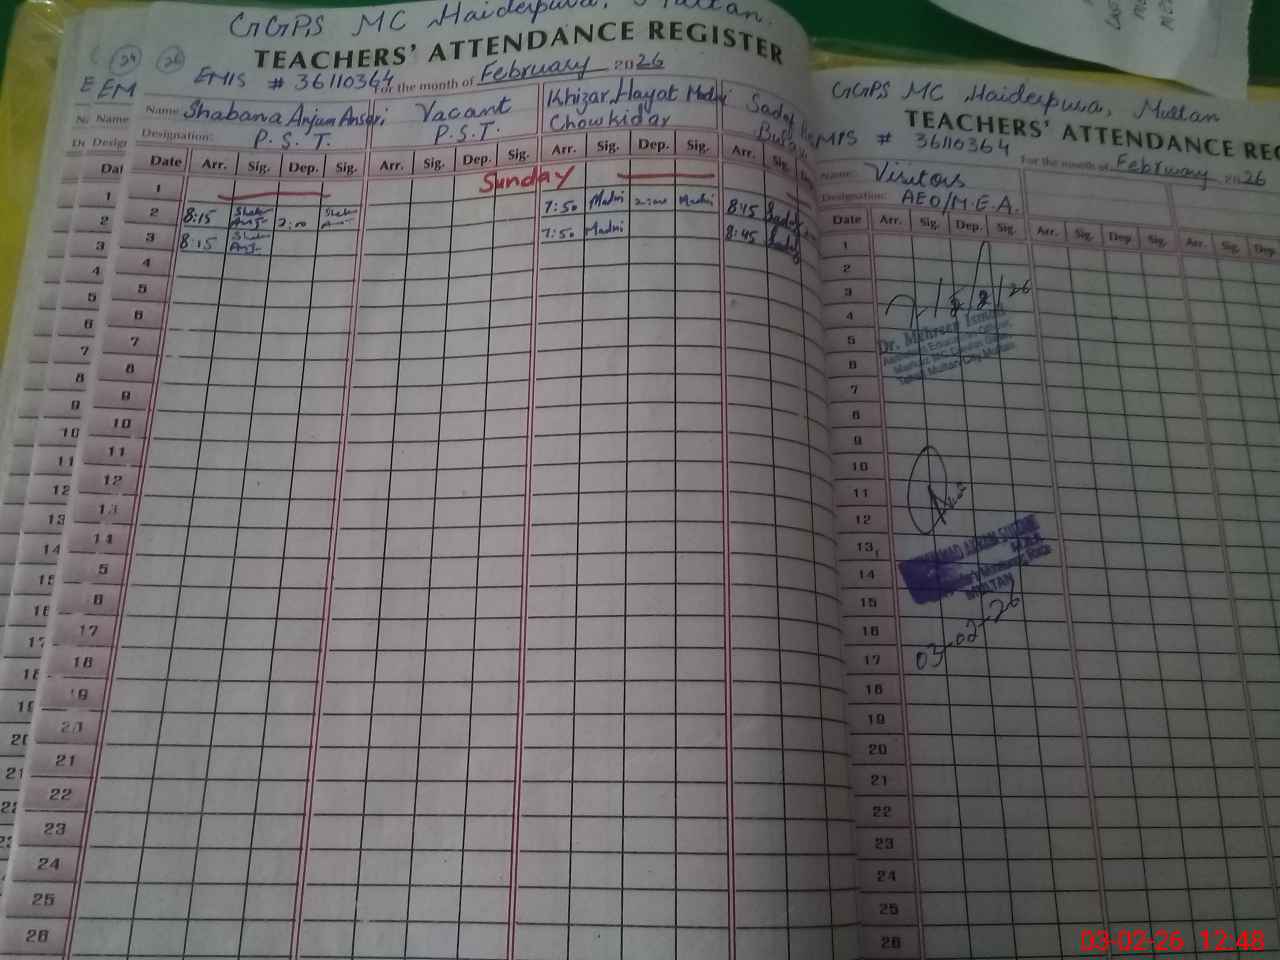 GGPS MC Haiderpura, Multan.
TEACHERS' ATTENDANCE REGISTER
EMIS # 36110364 For the month of February 2026
Name Shabana Anjum Ansari Vacant Khizar Hayat Madni Sadaf
Designation: P.S.T. P.S.T. Chowkidar
Date Arr. Sig. Dep. Sig. Arr. Sig. Dep. Sig. Arr. Sig. Dep. Sig. Arr. Sig.
1 Sunday
2 8:15 2:00 7:50 Madni 2:00 Madni 8:15 Sadaf
3 8:15 7:50 Madni 8:45 Sadaf
4
5
6
7
8
9
10
11
12
13
14
5
6
17
18
19
20
21
22
23
24
25
26
GGPS MC Haiderpura, Multan
TEACHERS' ATTENDANCE REG
EMIS # 36110364 For the month of February 2026
Name: Visitors
Designation: AEO/M.E.A.
Date Arr. Sig. Dep. Sig. Arr. Sig. Dep Sig. Arr. Sig. Dep.
1
2
3
4
Dr. Mehreen
5
6
7
8
9
10
11
12
13
14
MULTAN
15
16
03-02-26
17
18
19
20
21
22
23
24
25
26
03-02-26 12:48